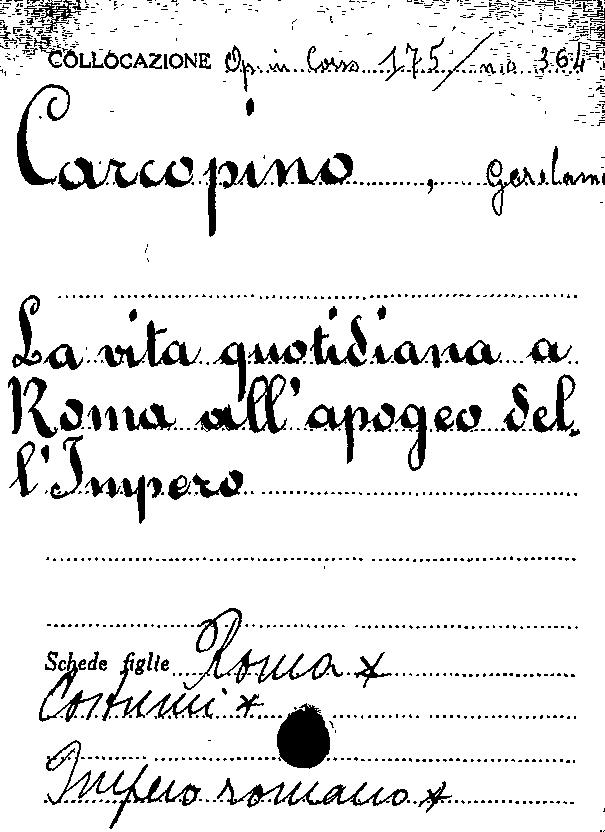 COLLOCAZIONE Op. in Corso 175/no 364
Carcopino, Gerolamo
La vita quotidiana a
Roma all'apogeo del-
l'Impero
Schede figlie Roma *
Costumi *
Impero romano *